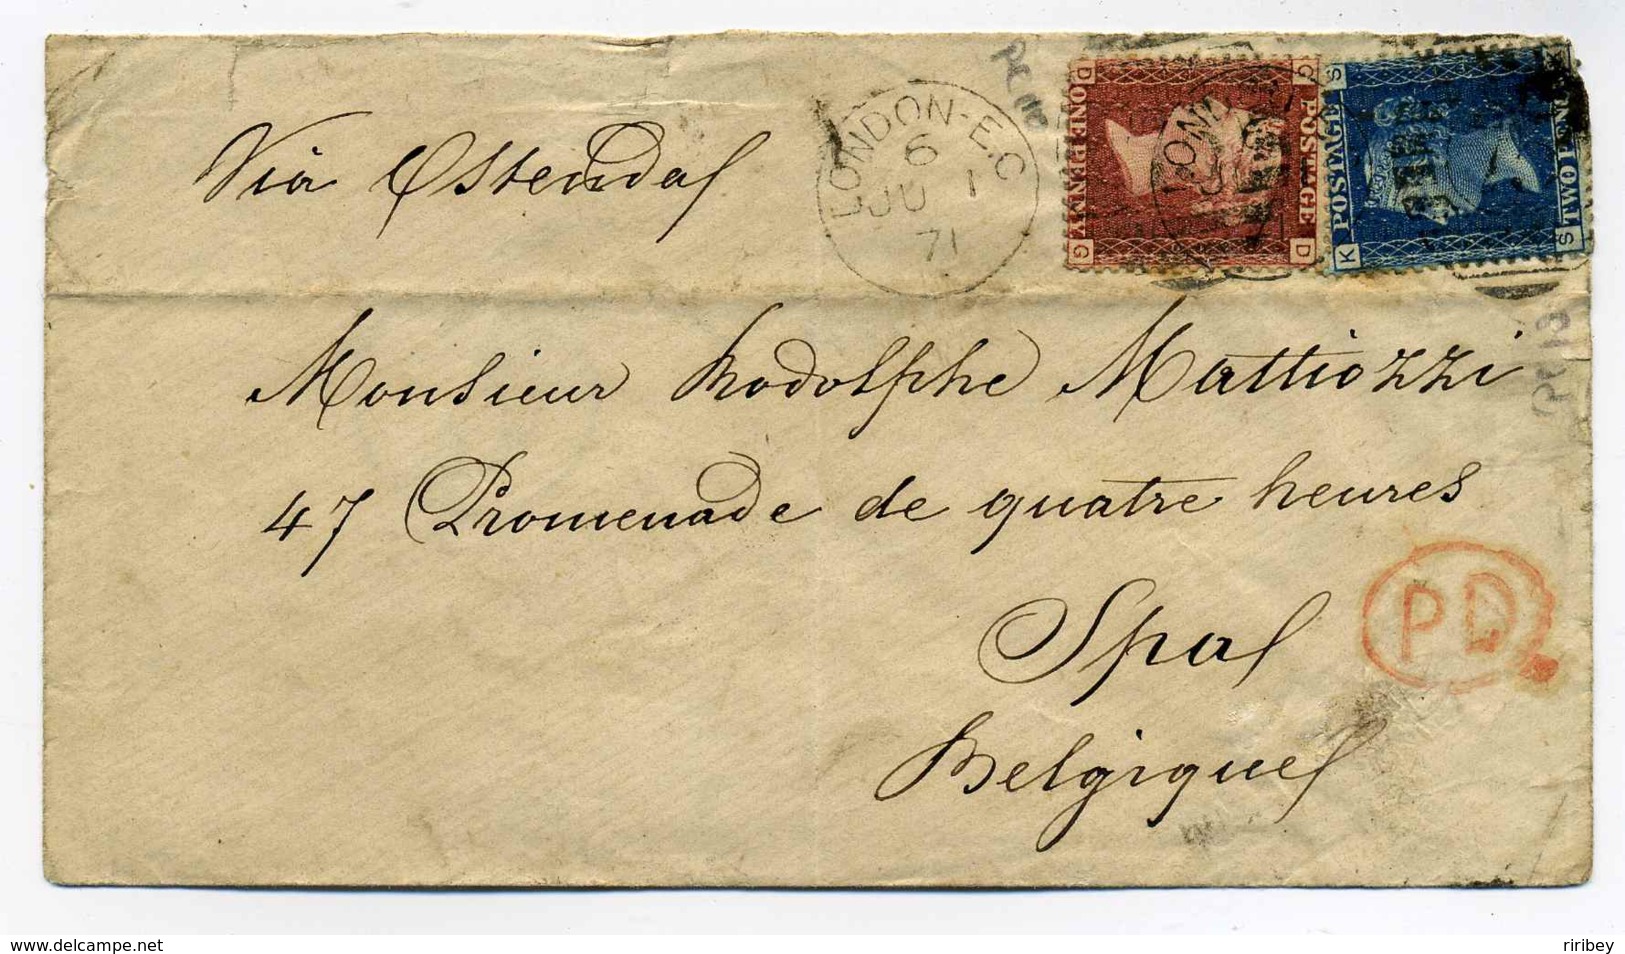 Via Ostende
LONDON-E.C
6
JU 1
71
D G
ONE PENNY
POSTAGE
G D
S K
POSTAGE
TWO PENCE
K S
LOND
JU
Monsieur Rodolphe Mattiozzi
47 Promenade de quatre heures
Spa
Belgique
PD
www.delcampe.net
riribey